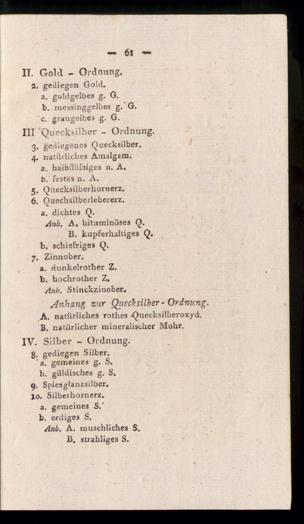 — 61 —
II. Gold - Ordnung.
2. gediegen Gold.
a. goldgelbes g. G.
b. messinggelbes g. G.
c. graugelbes g. G.
III Quecksilber - Ordnung.
3. gediegenes Quecksilber.
4. natürliches Amalgam.
a. halbflüssiges n. A.
b. festes n. A.
5. Quecksilberhornerz.
6. Quechsilberlebererz.
a. dichtes Q.
Anb. A. bituminöses Q.
B. kupferhaltiges Q.
b. schiefriges Q.
7. Zinnober.
a. dunkelrother Z.
b. hochrother Z.
Anb. Stinckzinober.
Anhang zur Quecksilber-Ordnung.
A. natürliches rothes Quecksilberoxyd.
B. natürlicher mineralischer Mohr.
IV. Silber - Ordnung.
8. gediegen Silber.
a. gemeines g. S.
b. güldisches g. S.
9. Spiesglanzsilber.
10. Silberhornerz.
a. gemeines S.
b. erdiges S.
Anb. A. muschliches S.
B. strahliges S.